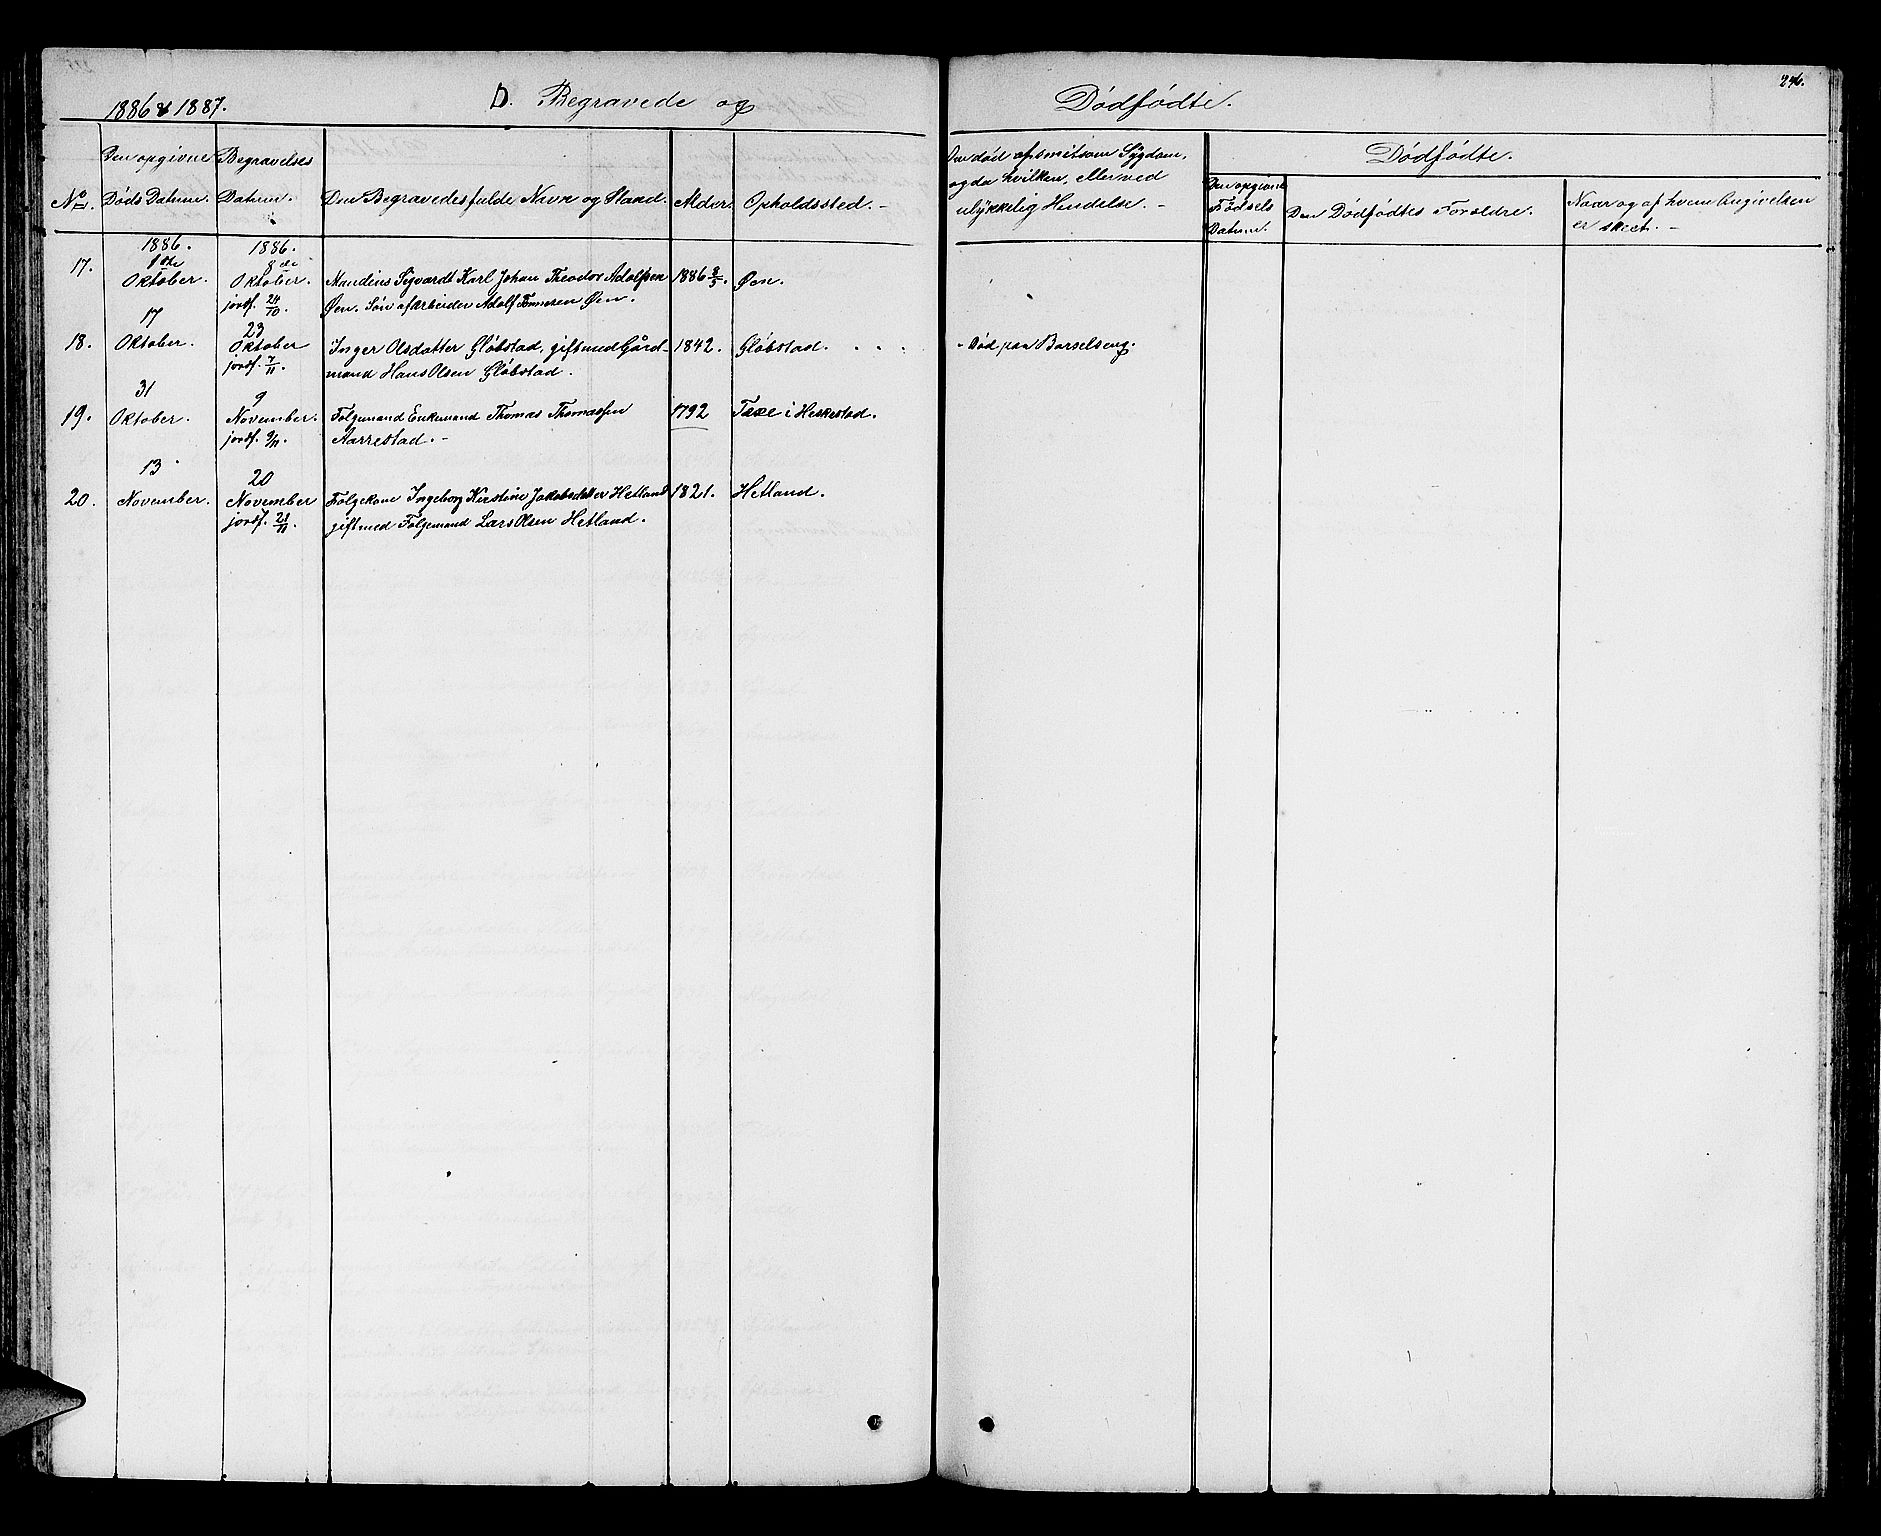 1886 & 1887.
D. Begravede og
Dødfødte.
246.
Den opgivne
Døds Datum.
Begravelses
Datum.
No.
Den Begravedes fulde Navn og Stand.
Alder.
Opholdssted. -
Om død af smitsom Sygdom,
og da hvilken, eller ved
ulykkelig Hendelse. -
Dødfødte.
Den opgivne
Fødsels
Datum.
Den Dødfødtes Forældre.
Naar og af hvem Angivelsen
er skeet. -
1886.
1886.
17.
1ste
Oktober.
8de
Oktober.
jordf. 24/10.
Mandius Sigvardt Karl Johan Theodor Adolfsen
Øen. Søn af Arbeider Adolf Tønnesen Øen.
1886 8/5.
Øen.
18.
17
Oktober.
23
Oktober
jordf. 7/11.
Inger Olsdatter Gløbstad, gift med Gård-
mand Hans Olsen Gløbstad.
1842.
Gløbstad.
- Død paa Barselseng.
19.
31
Oktober.
9
November.
jordf. 9/11.
Følgemand Enkemand Thomas Thomassen
Aarrestad. -
1792
i Heskestad.
20.
13
November.
20
November
jordf. 21/11.
Følgekone Ingeborg Kirstine Jakobsdatter Hetland
gift med Følgemand Lars Olsen Hetland.
1821.
Hetland.